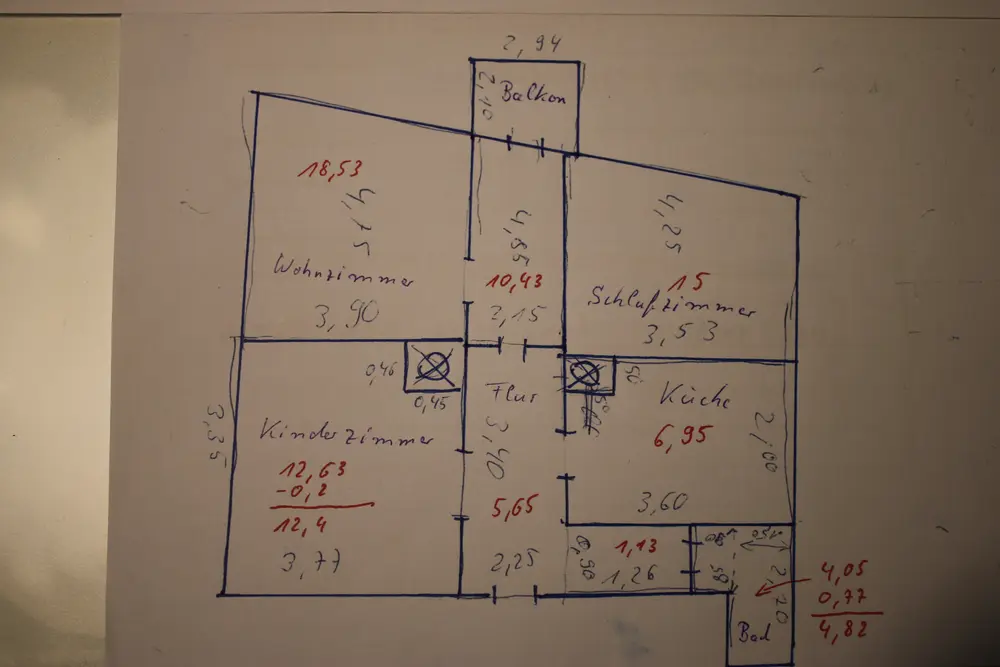 2,94
2,10
Balkon
18,53
4,75
Wohnzimmer
3,90
4,85
10,43
2,15
4,25
15
Schlafzimmer
3,53
0,46
0,45
Flur
3,40
5,65
2,25
50
Küche
6,95
2,00
3,60
3,35
Kinderzimmer
12,63
-0,2
12,4
3,77
0,90
1,13
1,26
2,20
Bad
4,05
0,77
4,82